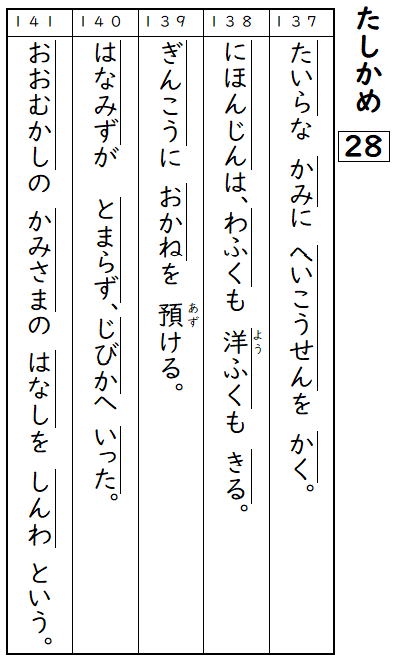 たしかめ
28
137
たいらな かみに へいこうせんを かく。
138
にほんじんは、わふくも 洋ふくも きる。
よう
139
ぎんこうに おかねを 預ける。
あず
140
はなみずが とまらず、じびかへ いった。
141
おおむかしの かみさまの はなしを しんわ という。